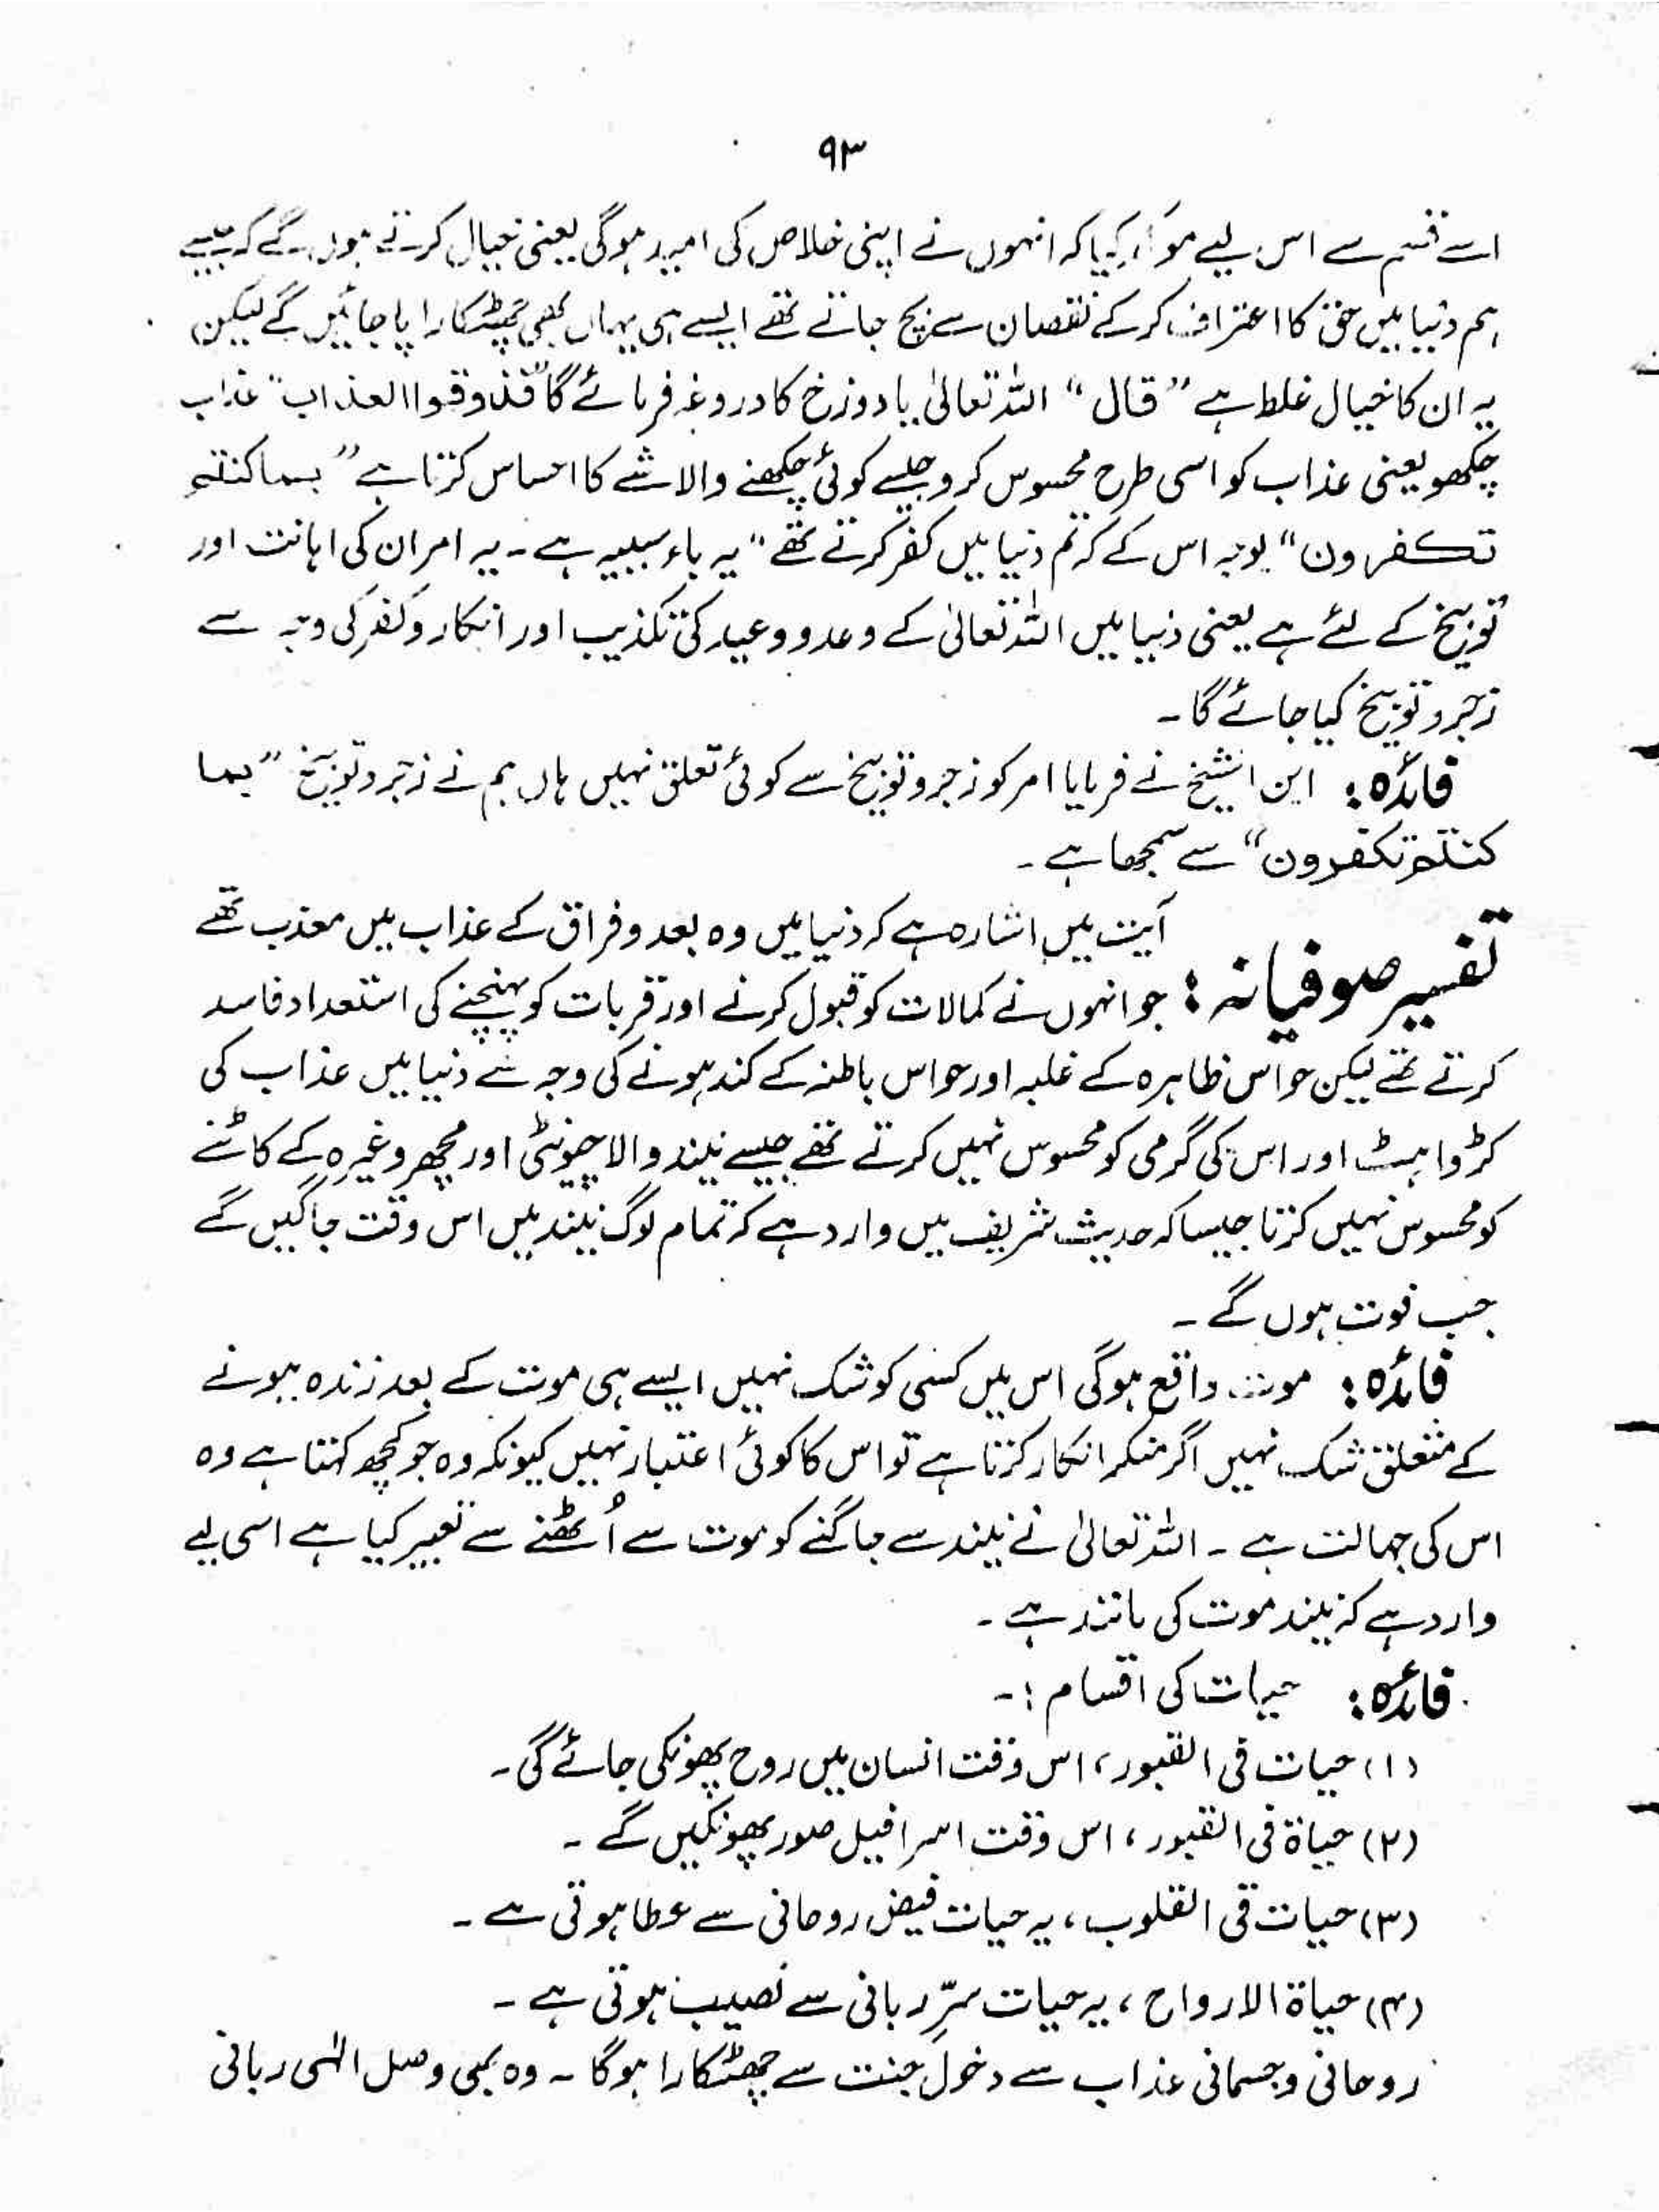 ۹۳
اسے قسم سے اس لیے مؤکد کیا کہ انہوں نے اپنی خلاص کی امید ہوگی یعنی خیال کرتے ہوں گے کہ جیسے
ہم دنیا میں حق کا اعتراف کر کے نقصان سے بچ جاتے تھے ایسے ہی یہاں بھی چھٹکارا پا جائیں گے لیکن
یہ ان کا خیال غلط ہے ”قال“ اللہ تعالیٰ یا دوزخ کا دروغہ فرمائے گا ”فذوقوا العذاب“ عذاب
چکھو یعنی عذاب کو اسی طرح محسوس کرو جیسے کوئی چکھنے والا شے کا احساس کرتا ہے ”بما کنتم
تکفرون“ بوجہ اس کے کہ تم دنیا میں کفر کرتے تھے ” یہ باء سببیہ ہے ۔ یہ امر ان کی اہانت اور
توبیخ کے لئے ہے یعنی دنیا میں اللہ تعالیٰ کے وعد و وعید کی تکذیب اور انکار و کفر کی وجہ سے
زجر و توبیخ کیا جائے گا ۔
فائدہ : ابن الشیخ نے فرمایا امر کو زجر و توبیخ سے کوئی تعلق نہیں ہاں ہم نے زجر و توبیخ ”بما
کنتم تکفرون“ سے سمجھا ہے ۔
تفسیر صوفیانہ : آیت میں اشارہ ہے کہ دنیا میں وہ بعد و فراق کے عذاب میں معذب تھے
جو انہوں نے کمالات کو قبول کرنے اور قربات کو پہنچنے کی استعداد فاسد
کرتے تھے لیکن حواس ظاہرہ کے غلبہ اور حواس باطنہ کے کند ہونے کی وجہ سے دنیا میں عذاب کی
کڑواہٹ اور اس کی گرمی کو محسوس نہیں کرتے تھے جیسے نیند والا چیونٹی اور مچھر وغیرہ کے کاٹنے
کو محسوس نہیں کرتا جیسا کہ حدیث شریف میں وارد ہے کہ تمام لوگ نیند میں اس وقت جاگیں گے
جب فوت ہوں گے ۔
فائدہ : موت واقع ہوگی اس میں کسی کو شک نہیں ایسے ہی موت کے بعد زندہ ہونے
کے متعلق شک نہیں اگر منکر انکار کرتا ہے تو اس کا کوئی اعتبار نہیں کیونکہ وہ جو کچھ کہتا ہے وہ
اس کی جہالت ہے ۔ اللہ تعالیٰ نے نیند سے جاگنے کو موت سے اُٹھنے سے تعبیر کیا ہے اسی لیے
وارد ہے کہ نیند موت کی مانند ہے ۔
فائدہ : حیات کی اقسام :۔
(۱) حیات فی القبور ، اس وقت انسان میں روح پھونکی جائے گی ۔
(۲) حیاۃ فی القبور ، اس وقت اسرافیل صور پھونکیں گے ۔
(۳) حیات فی القلوب ، یہ حیات فیض روحانی سے عطا ہوتی ہے ۔
(۴) حیاۃ الارواح ، یہ حیات سرِّ ربانی سے نصیب ہوتی ہے ۔
روحانی و جسمانی عذاب سے دخولِ جنت سے چھٹکارا ہوگا ۔ وہ بھی وصل الٰہی ربانی